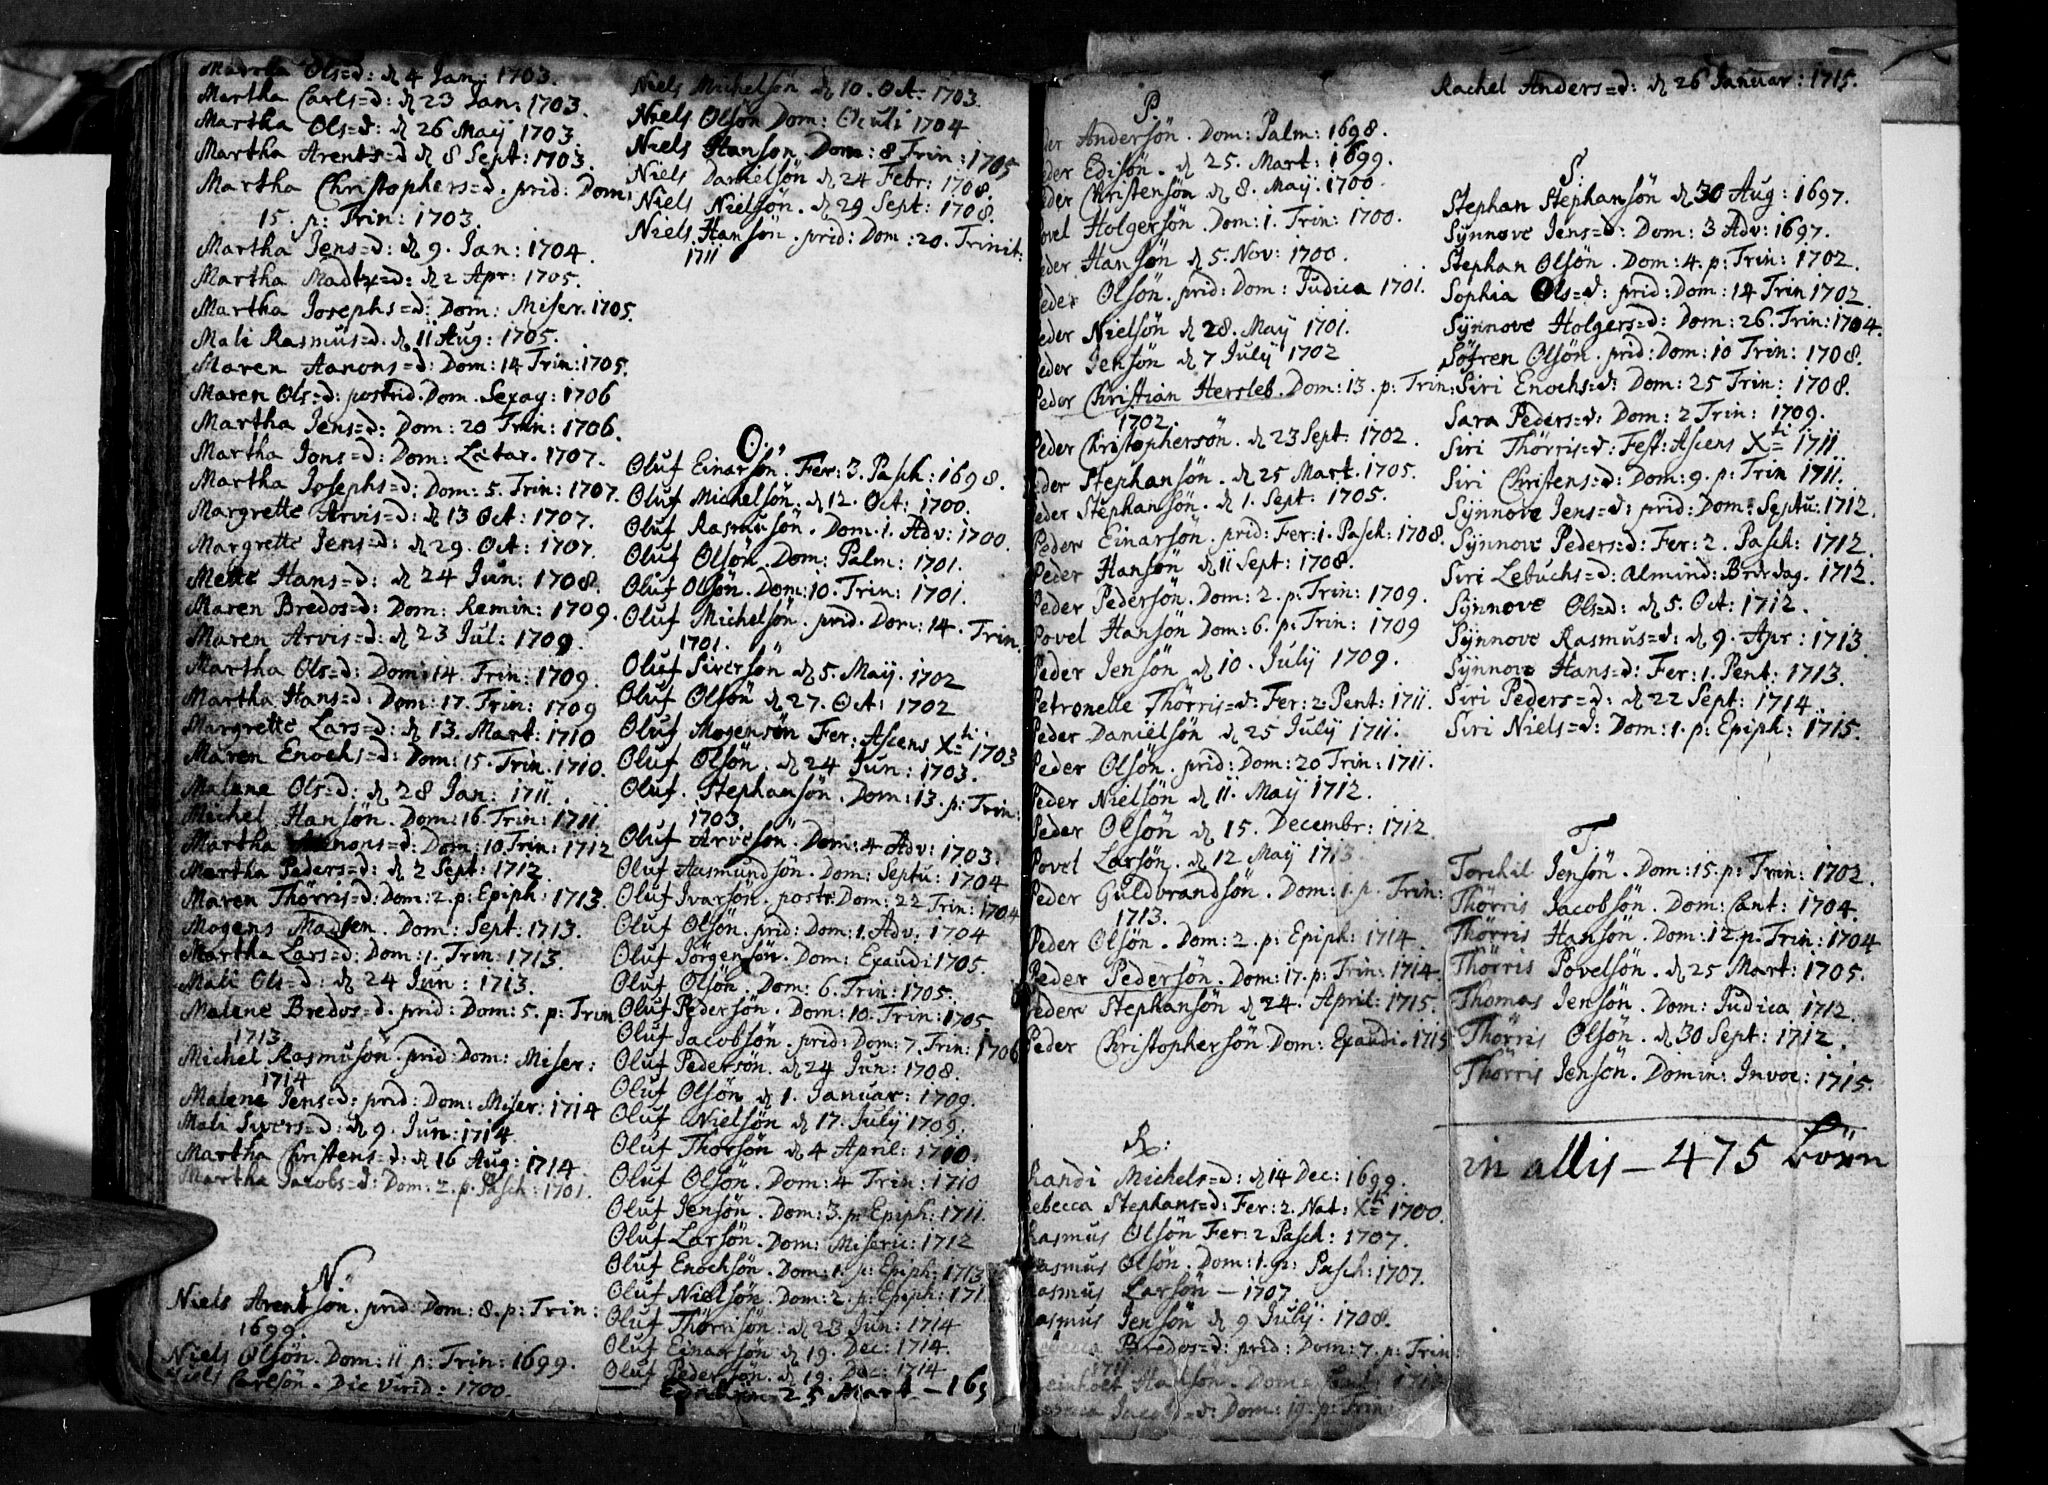 Martha Ols=d: d 4 Jan: 1703.
Martha Carls=d: d 23 Jan: 1703.
Martha Ols=d: d 26 Maÿ 1703.
Martha Arents=d d 8 Sept: 1703.
Martha Christophers=d. prid: Dom:
15. p: Trin: 1703.
Martha Jens=d: d 9. Jan: 1704.
Martha Madtz=d: d 2 Apr: 1705.
Martha Josephs=d: Dom: Miser. 1705.
Mali Rasmus=d. d 11 Aug: 1705.
Maren Hanons=d: Dom: 14 Trin: 1705.
Maren Ols=d: postrid. Dom. Sexag: 1706
Martha Jens=d: Dom: 20 Trin: 1706.
Martha Jons=d: Dom: Lætar. 1707.
Martha Josephs=d: Dom: 5. Trin: 1707.
Margrette Arvis=d: d 13 Oct: 1707.
Margrette Jens=d: d 29. Oct: 1707.
Mette Hans=d: d 24 Jun: 1708.
Maren Bredos=d: Dom: Remin: 1709.
Maren Arvis=d: d 23 Jul: 1709.
Martha Ols=d: Dom: 14 Trin: 1709.
Martha Hans=d: Dom: 17. Trin: 1709
Margrette Lars=d: d 13. Mart: 1710
Maren Enochs=d: Dom: 15. Trin. 1710.
Malene Ols=d: d 28 Jan: 1711.
Michel Hansön. Dom: 16. Trin: 1711
Martha Hanons=d: Dom: 10. Trin: 1712
Martha Peders=d: d 2 Sept: 1712.
Maren Thörris=d: Dom: 2. p: Epiph: 1713.
Mogens Madsen. Dom: Sept: 1713.
Martha Lars=d: Dom: 1. Trin: 1713.
Mali Ols=d: d 24 Jun: 1713.
Malene Bredos=d. prid: Dom: 5. p: Trin
1713.
Michel Rasmusön. prid: Dom: Miser:
1714
Malene Jens=d: prid: Dom: Miser: 1714
Mali Sivers=d: d 9. Jun: 1714.
Martha Christens=d: d 16 Aug: 1714.
Martha Jacobs=d: Dom: 2. p. Pasch: 1701.
N.
Niels Arentsön. prid: Dom: 8. p: Trin:
1699.
Niels Olsön. Dom: 11 p: Trin: 1699.
Niels Carlsön. Die Virid: 1700.
Niels Michelsön d 10. Oct: 1703.
Niels Olsön Dom: Oculi 1704
Niels Hanson. Dom: 8 Trin: 1705
Niels Danielsön d 24 Febr: 1708.
Niels Nielsön. d 29 Sept: 1708.
Niels Hansön. prid: Dom: 20. Trinit:
1711
O.
Oluf Einarsön. Fer: 3. Pasch: 1698.
Oluf Michelsön. d 12. Oct: 1700.
Oluf Rasmusön. Dom. 1. Adv: 1700.
Oluf Olsön. Dom: Palm: 1701.
Oluf Olsön. Dom: 10. Trin: 1701.
Oluf Michelsön. prid. Dom: 14. Trin.
1701.
Oluf Siversön d 5. Maÿ. 1702
Oluf Olsön d 27. Oct: 1702
Oluf Mogensön Fer: Ascens Xti: 1703
Oluf Olsön. d 24 Jun: 1703.
Oluf. Stephansön. Dom: 13. p: Trin:
1703.
Oluf Arvesön. Dom: 4 Adv: 1703.
Oluf Aasmundsön. Dom: Septu: 1704
Oluf Ivarsön. postr: Dom: 22 Trin: 1704
Oluf Olsön. prid: Dom: 1. Adv: 1704
Oluf Jörgensön. Dom: Exaudi 1705.
Oluf Olsön. Dom: 6. Trin: 1705.
Oluf Pedersön. Dom: 10. Trin: 1705.
Oluf Jacobsön. prid: Dom: 7. Trin: 1706
Oluf Pedersön. d 24 Jun: 1708.
Oluf Olsön d 1. Januar: 1709.
Oluf Nielsön d 17. Julÿ 1709.
Oluf Thorsön d 4 April: 1710.
Oluf Olsön. Dom: 4 Trin: 1710
Oluf Jensön. Dom: 3. p: Epiph: 1711.
Oluf Larsön. Dom: Miseric: 1712
Oluf Enochsön. Dom: 1. p: Epiph: 1713
Oluf Nielsön. Dom: 2. p: Epiph: 171
Oluf Thörrisön: d 23 Jun: 1714
Oluf Einarsön d 19. Dec: 1714.
Oluf Pedersön. d 19. Dec: 1714
25 Mart – 169
P.
der Andersön. Dom: Palm: 1698.
eder Edisön. d 25. Mart: 1699.
eder Christensön d 8. May. 1700.
ovel Holgersön. Dom: 1. Trin: 1700.
eder Hansön d 5. Nov: 1700.
eder Olsön. prid: Dom: Judica 1701.
eder Nielsön d 28. Maÿ 1701.
eder Jensön d 7 Julÿ 1702
Peder Christian Hersleb. Dom: 13. p: Trin:
1702.
Peder Christophersön. d 23 Sept: 1702.
eder Stephansön. d 25 Mart. 1705.
eder Stephansön. d 1. Sept: 1705.
Peder Einarsön. prid: Fer: 1. Pasch: 1708.
Peder Hansön d 11 Sept: 1708.
Peder Pedersön. Dom: 2. p: Trin: 1709.
Povel Hansön Dom: 6. p: Trin: 1709
Peder Jensön d 10. Julÿ 1709.
Petronelle Thörris=d: Fer: 2. Pent: 1711.
Peder Danielsön d 25 Julÿ 1711.
Peder Olsön. prid: Dom: 20 Trin: 1711.
Peder Nielsön d 11. Maÿ 1712.
Peder Olsön d 15. Decembr: 1712
Povel Larsön. d 12 Maÿ 1713
Peder Guldbrandsön. Dom: 1. p. Trin:
1713.
Peder Olsön. Dom: 2. p: Epiph: 1714.
Peder Pedersön. Dom: 17. p: Trin: 1714.
Peder Stephansön d 24. April: 1715.
Peder Christophersön Dom: Exaudi. 1715
R:
Randi Michels=d: d 14 Dec: 1699.
Rebecca Stephans=d: Fer: 2. Nat: Xti 1700.
Rasmus Olsön Fer: 2 Pasch: 1707.
Rasmus Olsön. Dom: 1. p: Pasch: 1707.
Rasmus Larsön – 1707.
Rasmus Jensön d 9 Julÿ: 1708.
Rebecca Bredos=d: prid: Dom: 7. p: Trin:
1711
Reinholt Hansön. Dom: Cant: 171
Jacobs=d: Dom: 19. p: Trin:
Rachel Anders=d: d 26 Januar: 1715.
S.
Stephan Stephansön d 30 Aug: 1697.
Sÿnnove Jens=d: Dom: 3 Adv: 1697.
Stephan Olsön. Dom: 4. p: Trin: 1702.
Sophia Ols=d: prid: Dom: 14 Trin 1702.
Sÿnnove Holgers=d: Dom: 26. Trin: 1704.
Söfren Olsön. prid: Dom: 10 Trin: 1708.
Siri Enochs=d: Dom: 25 Trin: 1708.
Sara Peders=d: Dom: 2 Trin: 1709.
Siri Thörris=d: Fest: Ascens Xti 1711.
Siri Christens=d: Dom: 9. p: Trin 1711.
Sÿnnove Jens=d: prid: Dom: Septu: 1712.
Sÿnnove Peders=d: Fer: 2. Pasch: 1712.
Siri Lebuchs=d: Almind: Bededag. 1712.
Sÿnnove Ols=d: d 5. Oct: 1712.
Sÿnnove Rasmus=d: d 9. Apr: 1713.
Sÿnnove Hans=d: Fer: 1. Pent: 1713.
Siri Peders=d: d 22 Sept: 1714.
Siri Niels=d: Dom: 1. p: Epiph: 1715.
T.
Torchil Jensön. Dom: 15. p: Trin: 1702.
Thörris Jacobsön. Dom: Cant: 1704.
Thörris Hansön. Dom: 12. p. Trin: 1704
Thörris Povelsön. d 25 Mart: 1705.
Thomas Jensön. Dom: Judica 1712.
Thörris Olsön. d 30 Sept: 1712.
Thörris Jensön. Domin: Invoc: 1715.
in allis – 475 Börn